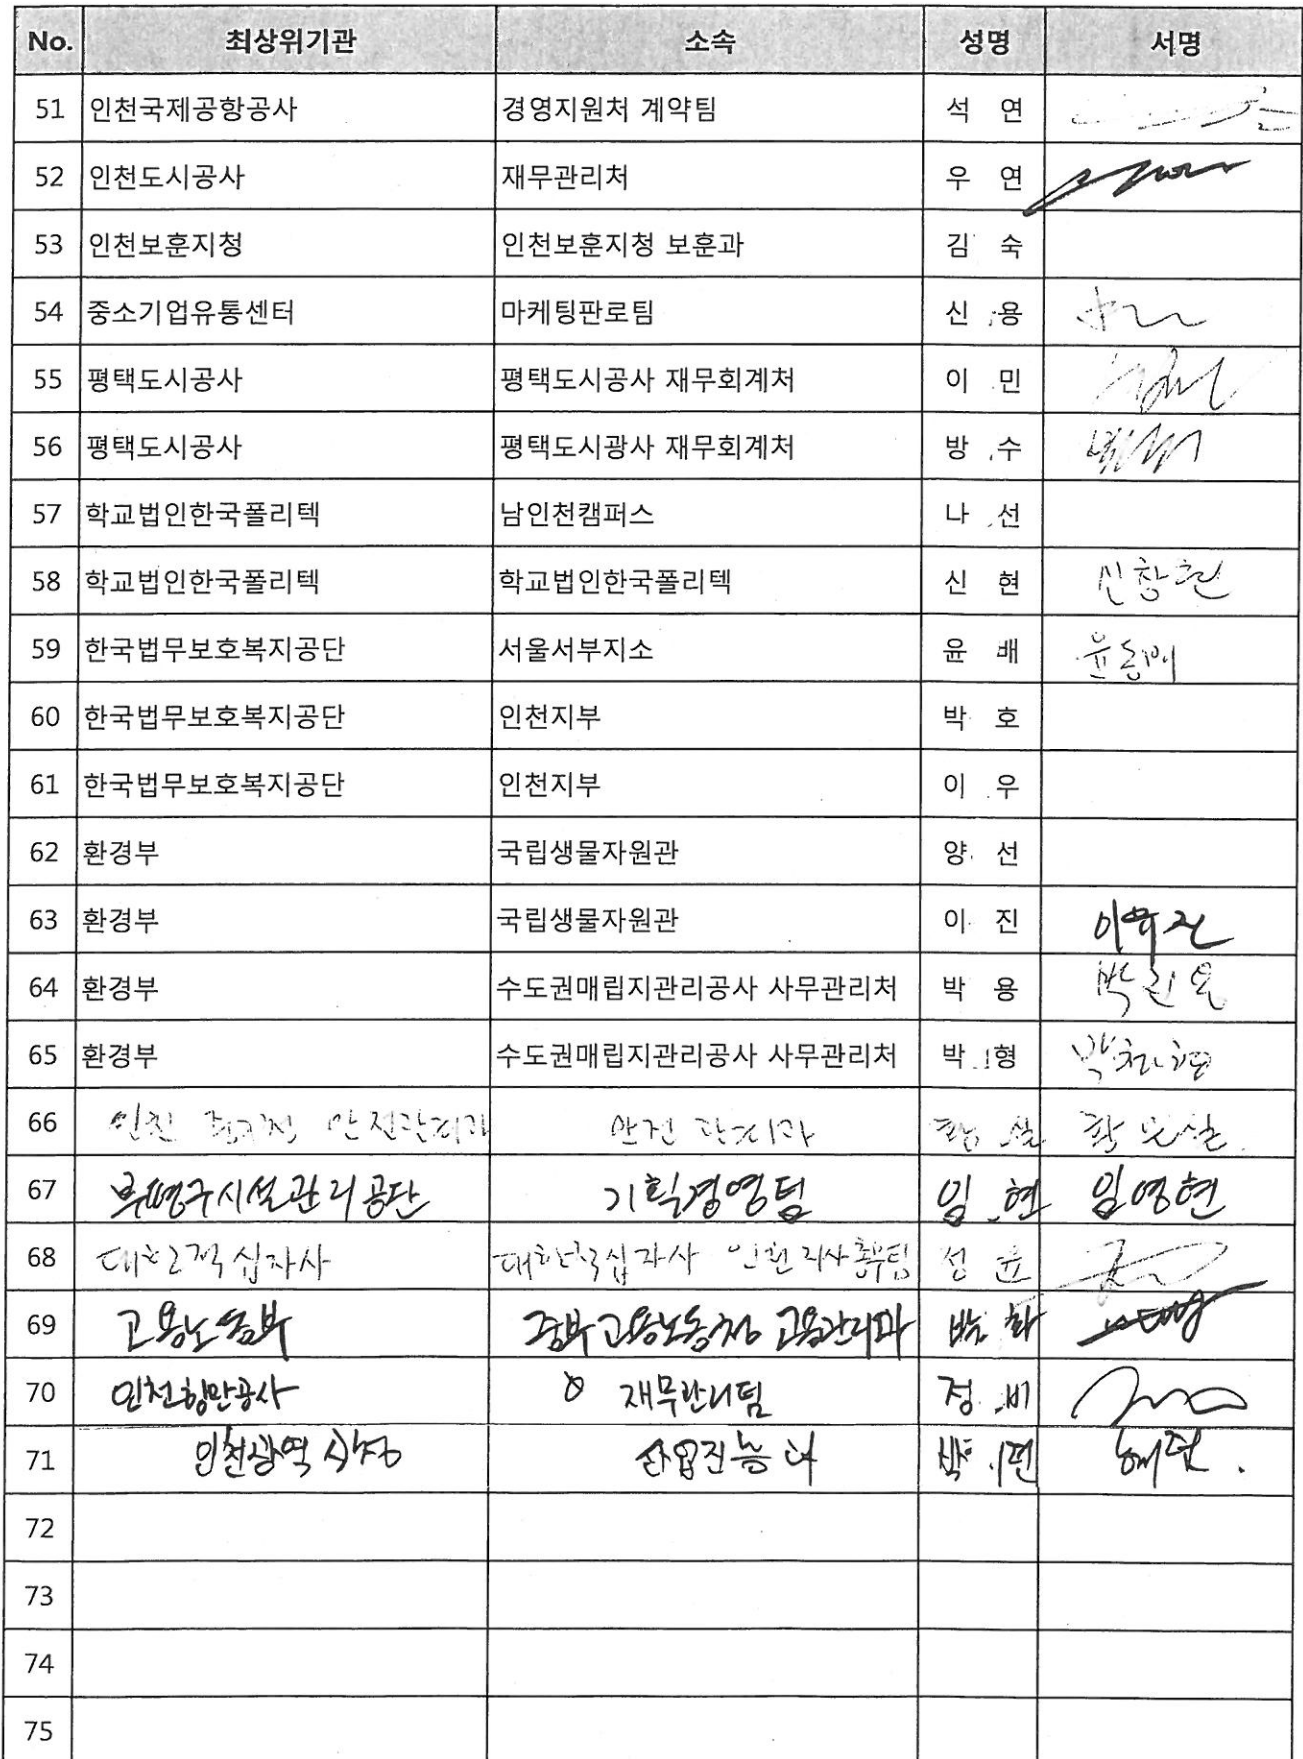 No. 최상위기관 소속 성명 서명
51 인천국제공항공사 경영지원처 계약팀 석 연
52 인천도시공사 재무관리처 우 연
53 인천보훈지청 인천보훈지청 보훈과 김 숙
54 중소기업유통센터 마케팅판로팀 신 용
55 평택도시공사 평택도시공사 재무회계처 이 민
56 평택도시공사 평택도시광사 재무회계처 방 수
57 학교법인한국폴리텍 남인천캠퍼스 나 선
58 학교법인한국폴리텍 학교법인한국폴리텍 신 현 신창현
59 한국법무보호복지공단 서울서부지소 윤 배 윤동배
60 한국법무보호복지공단 인천지부 박 호
61 한국법무보호복지공단 인천지부 이 우
62 환경부 국립생물자원관 양 선
63 환경부 국립생물자원관 이 진
64 환경부 수도권매립지관리공사 사무관리처 박 용
65 환경부 수도권매립지관리공사 사무관리처 박 형
66 인천 안전관리과 안전관리과
67 부평구시설관리공단 기획경영팀 임 현 임영현
68 대한적십자사 대한적십자사 인천지사 총무팀 성 윤
69 고용노동부 중부고용노동청 고용관리과 박 화
70 인천항만공사 재무관리팀 정 비
71 인천광역시청 산업진흥과 박 편
72
73
74
75